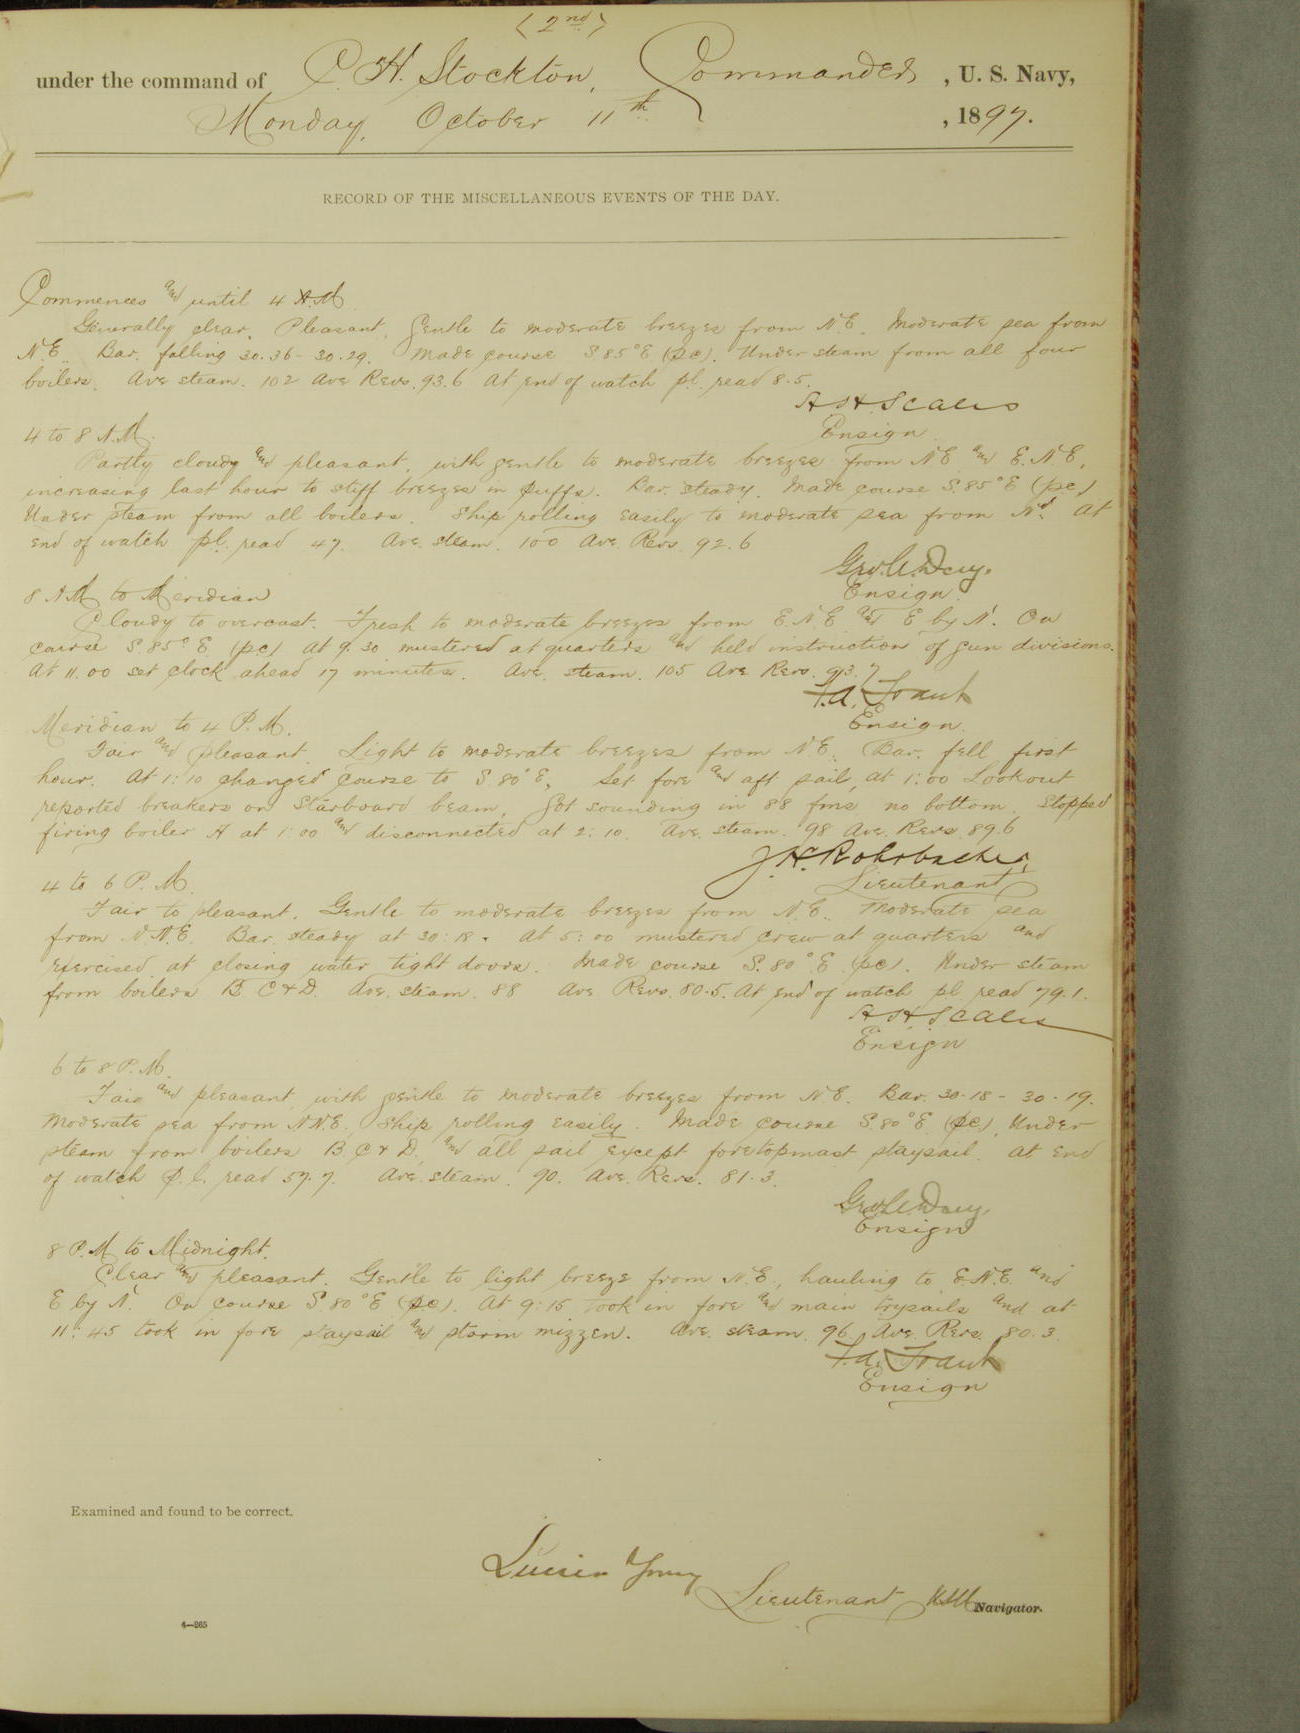 (2nd)
under the command of C. H. Stockton, Commander, U. S. Navy,
Monday, October 11th, 1897.
RECORD OF THE MISCELLANEOUS EVENTS OF THE DAY.
Commences and until 4 A.M.
Generally clear. Pleasant. Gentle to moderate breezes from N.E. Moderate sea from
N.E. Bar. falling 30.36 - 30.29. Made course S 85° E (pc). Under steam from all four
boilers. Ave steam. 102 Ave Revs. 93.6 At end of watch pl. read 8.5.
A H Scales
Ensign
4 to 8 A.M.
Partly cloudy and pleasant, with gentle to moderate breezes from N.E. and E.N.E.
increasing last hour to stiff breezes in puffs. Bar. steady. Made course S. 85° E (pc)
Under steam from all boilers. Ship rolling easily to moderate sea from Nd. At
end of watch pl. read 47. Ave. steam. 100 Ave. Revs 92.6
Ensign
8 A.M. to Meridian
Cloudy to overcast. Fresh to moderate breezes from E.N.E. and E by N. On
course S. 85° E (pc) At 9.30 mustered at quarters and held instruction of gun divisions.
At 11.00 set clock ahead 17 minutes. Ave. steam. 105 Ave Revs. 93.7
Ensign
Meridian to 4 P.M.
Fair and pleasant. Light to moderate breezes from N.E. Bar. fell first
hour. At 1:10 changed course to S. 80° E. Set fore and aft sail, at 1:00 Lookout
reported breakers on starboard beam. Got sounding in 88 fms no bottom. Stopped
firing boiler A at 1:00 and disconnected at 2:10. Ave. steam. 98 Ave. Revs 89.6
J. H. Rohrbacher,
Lieutenant
4 to 6 P.M.
Fair to pleasant. Gentle to moderate breezes from N.E. Moderate sea
from N.N.E. Bar. steady at 30:18. At 5:00 mustered crew at quarters and
exercised at closing water tight doors. Made course S. 80° E (pc). Under steam
from boilers B C & D. Ave. steam. 88 Ave Revs. 80.5. At end of watch pl read 79.1.
A H Scales
Ensign
6 to 8 P.M.
Fair and pleasant with gentle to moderate breezes from N.E. Bar. 30.18 - 30.19.
Moderate sea from N.N.E. Ship rolling easily. Made course S. 80° E (pc). Under
steam from boilers B. C & D. and all sail except foretopmast staysail. At end
of watch p.l. read 57.7. Ave. steam. 90. Ave. Revs. 81.3.
Ensign
8 P.M. to Midnight.
Clear and pleasant. Gentle to light breeze from N.E., hauling to E.N.E. and
E by N. On course S. 80° E (pc). At 9:15 took in fore and main trysails and at
11:45 took in fore staysail and storm mizzen. Ave. steam. 96. Ave. Revs. 80.3.
Ensign
Examined and found to be correct.
Lucien Young
Lieutenant USN Navigator.
4—265